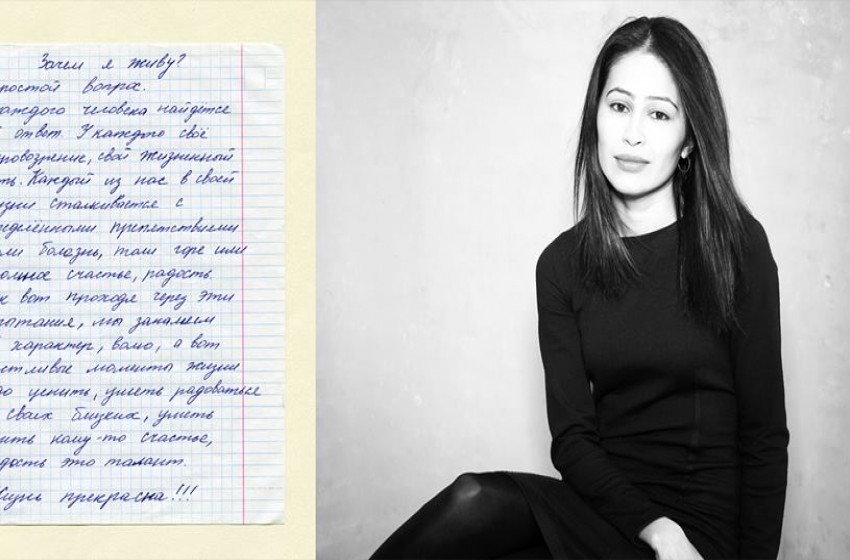 Зачем я живу?
простой вопрос.
каждого человека найдется
й ответ. У каждго своё
ровозрение, свой жизненный
ть. Каждый из нас в своей
изни сталкивается с
еделёнными препятствиями
или болазнь, толи горе или
ольное счастье, радость
к вот проходя через эти
пытания, мы закаляем
характер, волю, а вот
стливые моменты жизни
до уенить, уметь радоваться
своих близких, уметь
ить кому-то счастье,
дость это талант.
Жизнь прекрасна!!!